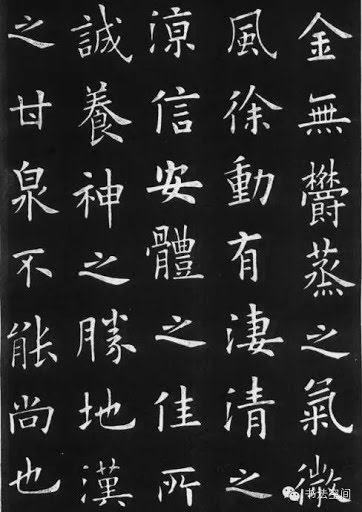 金無欝蒸之氣微
風徐動有淒清之
涼信安體之佳所
誠養神之勝地漢
之甘泉不能尚也
书法空间